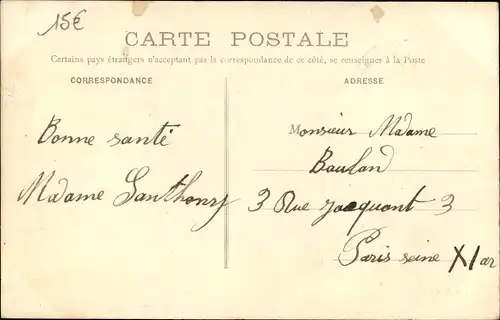 15€
CARTE POSTALE
Certains pays étrangers n'acceptant pas la correspondance de ce côté, se renseigner à la Poste
CORRESPONDANCE
ADRESSE
Bonne santé
Madame Santhony
Monsieur Madame
Bouland
3 Rue Jacquant 3
Paris seine XI ar